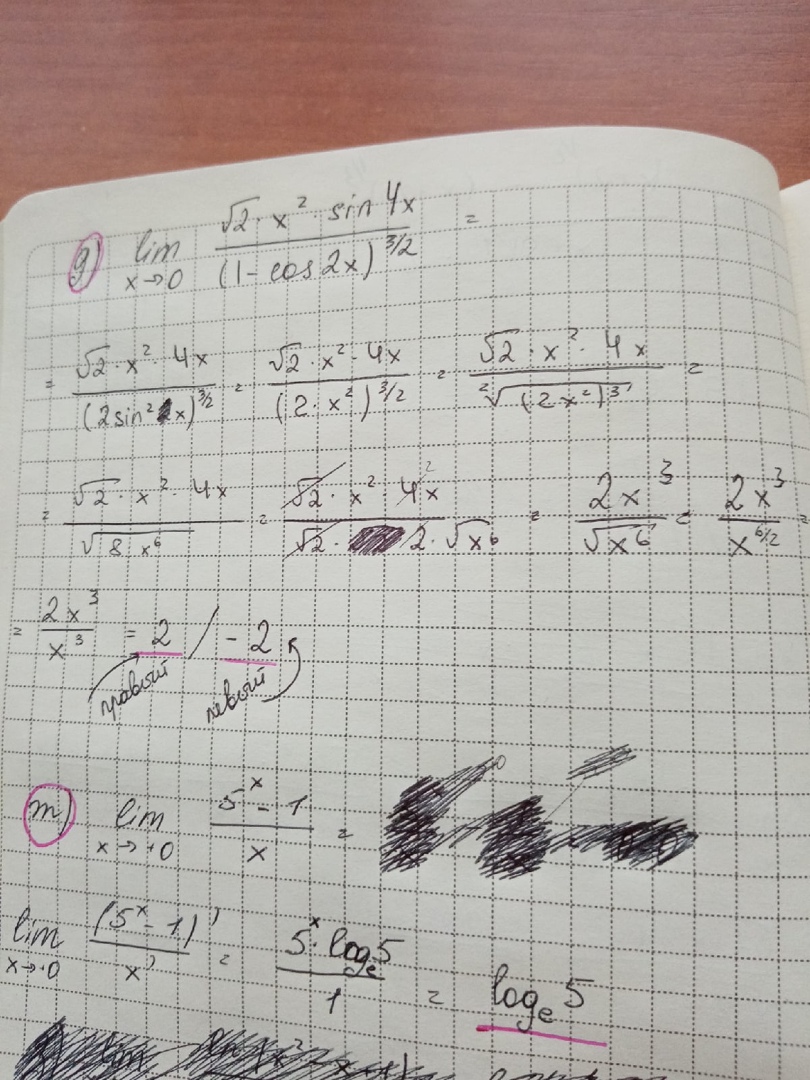 g) lim x→0 √2 · x² · sin 4x / (1 - cos 2x)^3/2 =
= √2 · x² · 4x / (2 sin² x)^3/2 = √2 · x² · 4x / (2 · x²)^3/2 = √2 · x² · 4x / ²√(2 x²)³ =
= √2 · x² · 4x / √8 x⁶ = √2 · x² · 4x 2 / √2 · 2 · √x⁶ = 2x³ / √x⁶ = 2x³ / x^6/2 =
= 2x³ / x³ = 2 / -2
правый левый
m) lim x→0 5ˣ - 1 / x =
lim x→0 (5ˣ - 1)' / x' = 5ˣ · logₑ5 / 1 = logₑ5